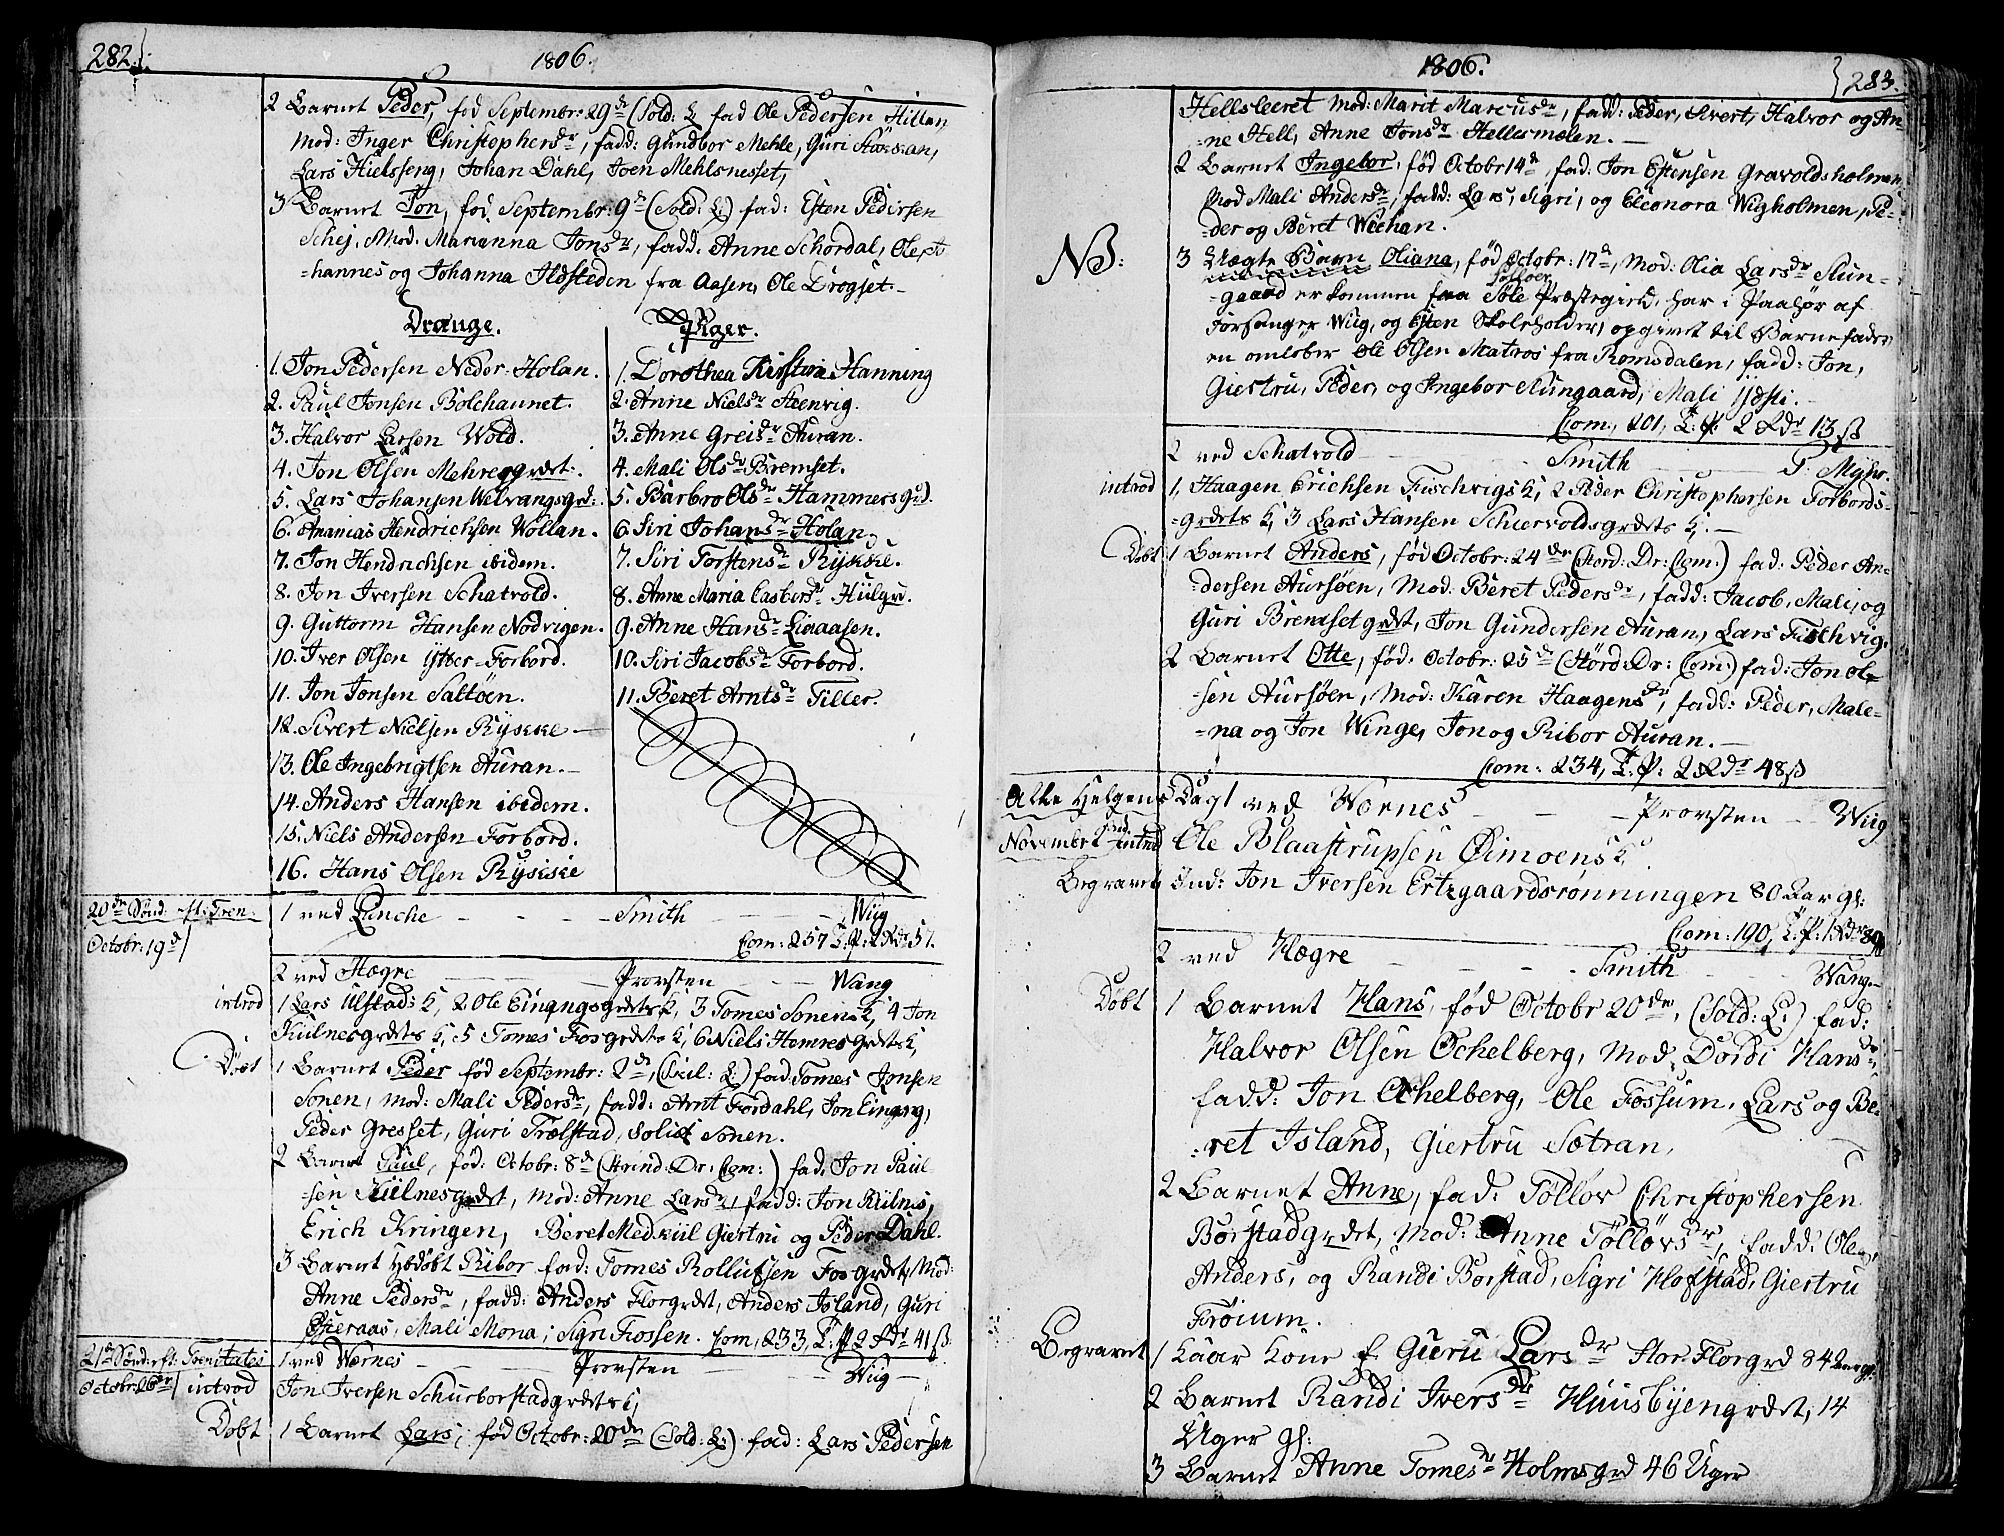 282. 1806.
2 Barnet Peder, fød Septembr: 29de (Sold: L. fad Ole Pedersen Hillan
Mod: Inger Christophersdr, fadd: Gundbor Mehle, Guri
Lars Kielsseng, Johan Dahl, Joen Mehlsnesset,
3 Barnet Jon, fød Septembr: 9de (Sold: L.) fad: Esten Pedersen
Schej, Mod. Marianna Jonsdr, fadd: Anne Schordal, Ole, Jo
=hannes og Johanna Ildsteden fra Aasen, Ole Drogset.
Drænge.
1. Jon Pedersen Neder-Holan.
2. Paul Jonsen Bolchaunet.
3. Halvor Larsen Wold.
4. Jon Olsen Mehregrdet.
5. Lars Johansen Welvangsgrd:
6. Ananias Hendrichsen Wollan.
7. Jon Hendrichsen ibidem.
8. Jon Iversen Schatvold.
9. Guttorm Hansen Nodvigen.
10. Iver Olsen Ytter-Forbord.
11. Jon Jonsen Saltøen.
12. Sivert Nielsen Rÿskke
13. Ole Ingebrigtsen Auran.
14. Anders Hansen ibidem.
15. Niels Andersen Forbord.
16. Hans Olsen Rÿskke
Piger.
1. Dorothea Kirstina Hanning
2. Anne Nielsdr Steenvig.
3. Anne Greisdr Auran.
4. Mali Olsdr Bremset.
5. Barbro Olsdr Hammersgrd.
6. Siri Johansdr Holan
7. Siri Torstensdr Rÿkke.
8. Anne Maria Casbersdr Hülgrd.
9. Anne Hansdr Livaasen.
10. Siri Jacobsdr Forbord.
11. Beret Arntsdr Tiller.
20de Sønd. eft: Tren: 1 ved Lanche Smith Wiig
Octobr: 19de Com: 257 T.P: 2 Rdr 57.
2 ved Hegre Provsten Wang
introd 1 Lars Ulstad: K, 2 Ole Eingngsgrdets K, 3 Tomes Sonens K, 4 Jon
Kulnesgrdets K, 5 Tomes Fosgrdets K, 6 Niels Hemresgrdets K,
Døbt 1 Barnet Peder fød Septembr: 2de, (Civil: L:) fad: Tomes Jonsen
Sonen, Mod: Mali Pedersdr, fadd: Arnt Fordahl, Jon Eingng,
Peder Gresset, Guri Trælstad, Solici Sonen.
2 Barnet Paul, fød: Octobr: 8de (Strind: Dr: Com:) fad: Jon Paul
=sen Külnesgrdet, Mod: Anne Larsdr, fadd: Jon Külnes,
Erich Kringen, Beret Medkiil Giertru og Peder Dahl.
3 Barnet Hiedøbt Ribor fad: Tomes Rollufsen Fosgrdet, Mod:
Anne Pedersdr, fadd: Anders Florgrdet, Anders Island, Guri
Mali Mona, Sigri Fossen. Com, 233, T.P. 2 Rdr 41 ß.
21de Sønd: eft: Trenitates 1 ved Wærnes Provsten Wiig
Octobr: 26de introd Jon Iversen Schurborstadgrdets K,
Døbt 1 Barnet Lars, fød Octobr: 20de (Sold: L:) fad: Lars Pedersen
1806. 283.
Hellsleeret Mod: Marit Marcusdr, fadd: Peder, Sivert, Halvor og An-
=ne Hell, Anne Jonsdr Hellesmælen.
2 Barnet Ingebor, fød Octobr 14de, fad: Jon Estensen Gravoldsholmen
Mod Mali Andersdr, fadd: Lars, Sigri, og Eleonora Wiigholmen, Pe-
=der og Beret Weehan.
NB: 3 Uægte Barn Oliana, fød Octobr: 17de, Mod: Olia Larsdr Stun-
=gaard er kommen fra Søle Præstegield, har i Paahør af
Forsanger Wiig, og Esten Skoleholder, opgivet til Barnefader
en omløber Ole Olsen Matros fra Romsdalen, fadd: Jon,
Giertru, Peder, og Ingebor Stungaard, Mali Ydsti.
Com, 201, T.P: 2 Rdr 13 ß
2 ved Schatvold Smith
introd 1, Haagen Erichsen Fischvigs K, 2 Peder Christophersen Forbords-
=grdets K, 3 Lars Hansen Schiervoldsgrdets K.
Døbt 1 Barnet Anders, fød Octobr: 24de (Stord: Dr: Com:) fad: Peder An-
=dersen Aursøen, Mod: Beret Pedersdr, fadd: Jacob, Mali, og
Guri Bremsetgrdet, Jon Gundersen Auran, Lars Fischvig.
2 Barnet Otte, fød. Octobr: 25de (Størd: Dr: Com:) fad: Jon Ol-
=sen Aursøen, Mod: Karen Haagensdr, fadd: Peder, Male-
=na og Jon Winge, Jon og Ribor Auran.
Com: 234, T.P: 2 Rdr 48 ß
Alle Helgens Dag 1 ved Wærnes Provsten Wiig
November 2 introd Ole Blaastrupsen Øimoens K
Begravet Ind: Jon Iversen Ertzgaardsrønningen 80 Aar gl:
Com: 190, T.P: 1 Rdr
2 ved Hægre Smith Wang
Døbt 1 Barnet Hans, fød Octobr 20de, (Sold: L:) fad:
Halvor Olsen Ochelberg, Mod, Dordi Hansdr,
fadd: Jon Ochelberg, Ole Fossum, Lars og Be-
=ret Island, Giertru Sætran,
2 Barnet Anne, fad: Tølløv Christophersen
Borstadgrdet, Mod: Anne Tølløvsdr, fadd: Ole,
Anders, og Randi Borstad, Sigri Hofstad, Giertru
Trøium.
Begravet 1 Kaar Kone E. Guru Larsdr Stor-Florgrd 84 Aar gl:
2 Barnet Randi Iversdr Huusbÿengrdet, 14
Uger gl:
3 Barnet Anne Tomesdr Holmsgrd 46 Uger